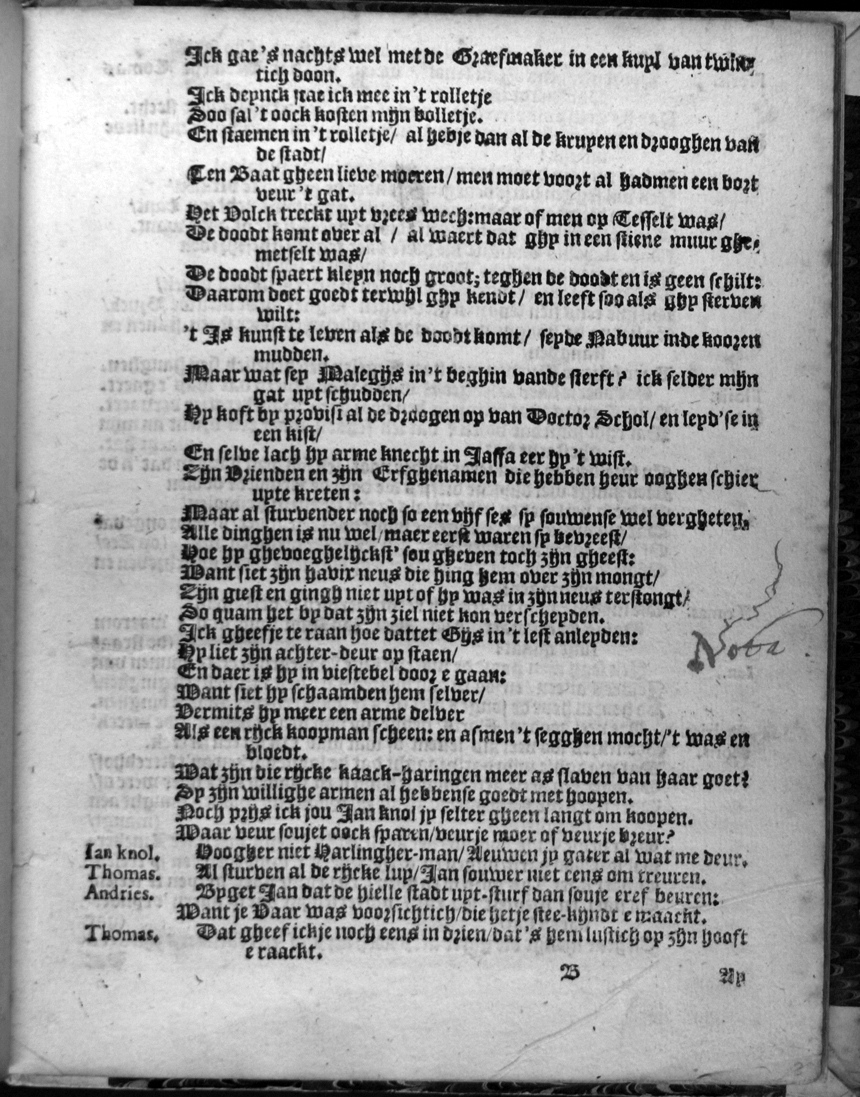 Ick gae's nachts wel met de Graefmaker in een kuyl van twin-
tich doon.
Ick denck stae ick mee in 't rolletje
Soo sal 't oock kosten mijn bolletje.
En staemen in 't rolletje/ al hebje dan al de kruyen en drooghen van
de stadt/
Ten Baat gheen lieve moeren/ men moet voort al hadmen een bort
veur 't gat.
Het Volck treckt uyt vrees wech: maar of men op Tessel was/
De doodt komt over al / al waert dat ghy in een stiene muur ghe-
metselt was/
De doodt spaert kleyn noch groot; teghen de doodt en is geen schilt:
Daarom doet goedt terwijl ghy kendt/ en leeft soo als ghy sterven
wilt:
't Is kunst te leven als de doodt komt/ seyde Nabuur inde kooren
mudden.
Maar wat sey Malegijs in 't beghin vande sterft? ick selder mijn
gat uyt schudden/
Hy koft by provisi al de droogen op van Doctor Schol/ en leyd'se in
een kist/
En selve lach hy arme knecht in Jaffa eer hy 't wist.
Zijn Vrienden en zijn Erfghenamen die hebben heur ooghen schier
uyte kreten:
Maar al sturvender noch so een vijf ses sy souwense wel vergheten.
Alle dinghen is nu wel/ maer eerst waren sy bevreest/
Hoe hy ghevoeghelijckst' sou gheven toch zijn gheest:
Want siet zijn havix neus die hing hem over zijn mongt/
Zijn giest en gingh niet uyt of hy was in zijn neus terstongt/
So quam het by dat zijn ziel niet kon verscheyden.
Ick gheefje te raan hoe dattet Gijs in 't lest anleyden:
Hy liet zijn achter-deur op staen/
En daer is hy in viestebel door e gaan:
Want siet hy schaamden hem selver/
Vermits hy meer een arme delver
Als een rijck koopman scheen: en asmen 't segghen mocht/ 't was en
bloedt.
Wat zijn die rijcke kaack-haringen meer as slaven van haar goet?
Sy zijn willighe armen al hebbense goedt met hoopen.
Noch prijs ick jou Jan knol jy selter gheen langt om koopen.
Maar veur soujet oock sparen/ veurje moer of veurje breur?
Ian knol. Hoogher niet Harlingher-man/ Aeuwen jy gater al wat me deur.
Thomas. Al sturven al de rijcke luy/ Jan souwer niet eens om treuren.
Andries. Byget Jan dat de hielle stadt uyt-sturf dan souje eref beuren:
Want je Vaar was voorsichtich/ die hetje stee-kijndt e maackt.
Thomas. Dat gheef ickje noch eens in drien/ dat's hem lustich op zijn hooft
e raackt.
B Ay
Nota